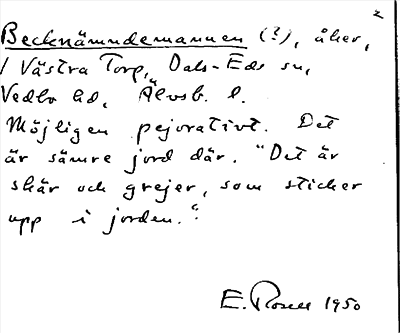 2
Becknämndemannen (?), åker,
i Västra Torp, Dals-Eds sn,
Vedbo hd, Älvsb. l.
Möjligen pejorativt. Det
är sämre jord där. "Det är
skär och grejer, som sticker
upp i jorden."
E. Rosell 1950